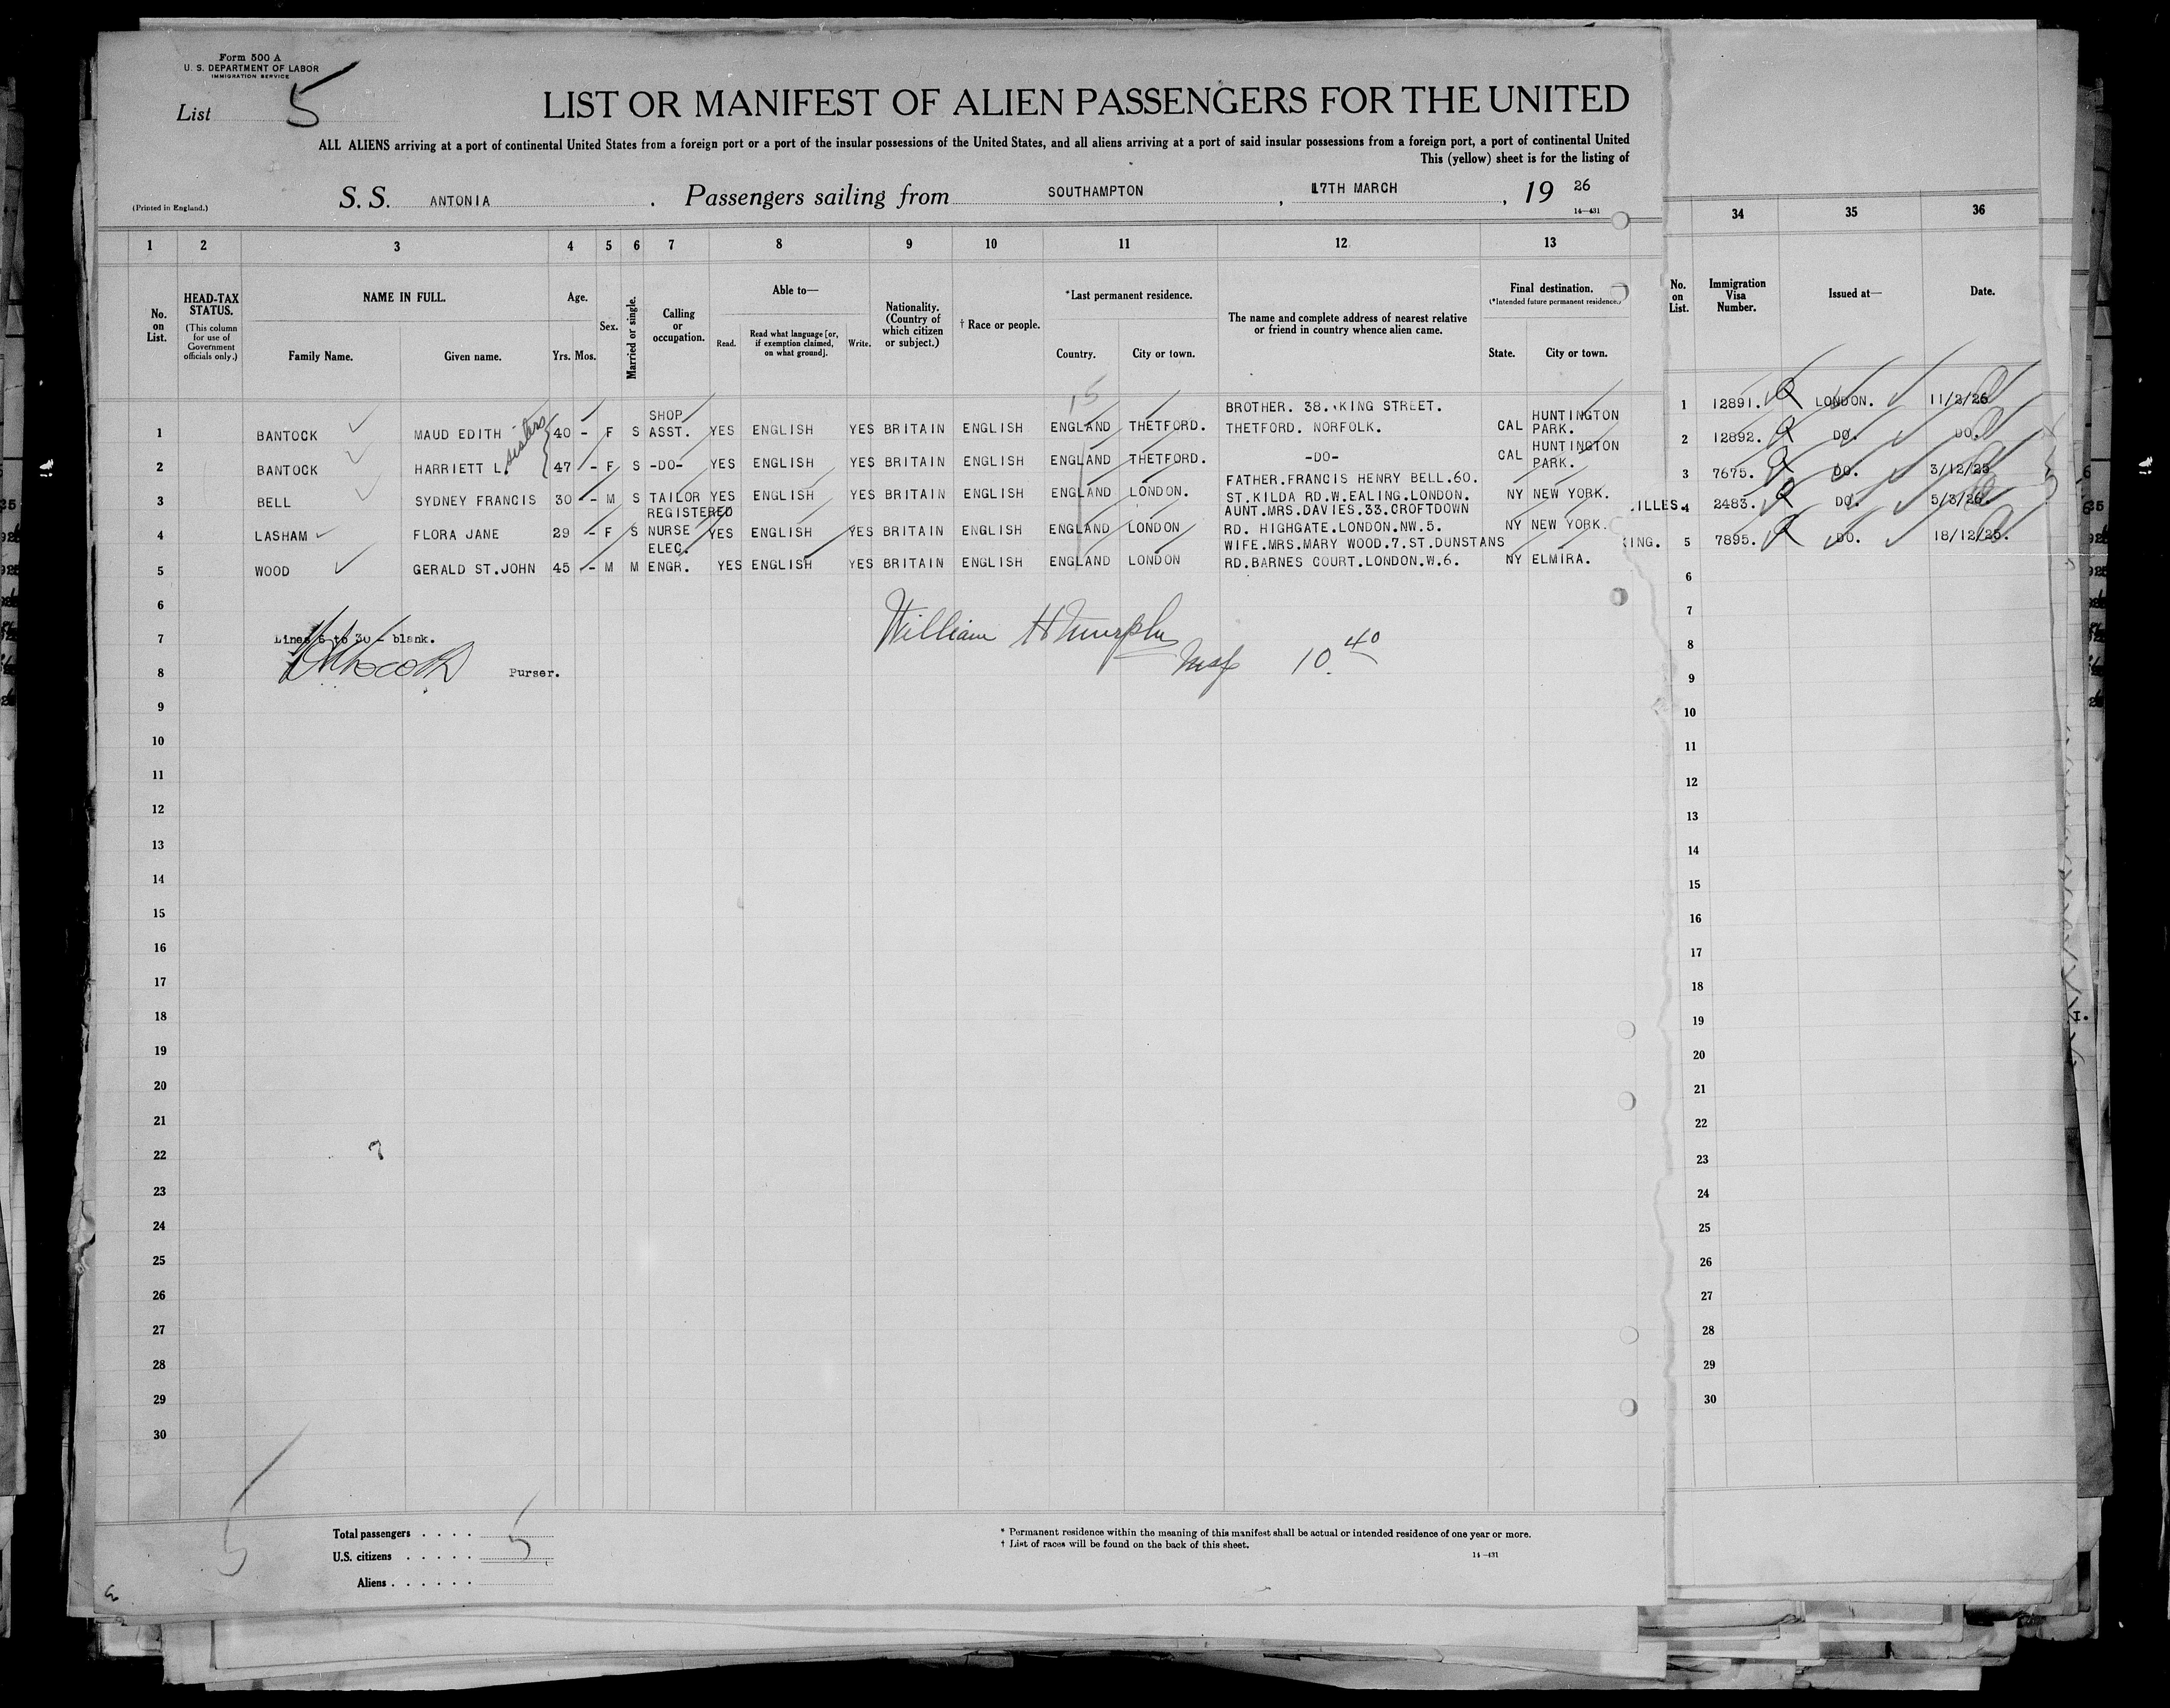 Form 500 A
U. S. DEPARTMENT OF LABOR
IMMIGRATION SERVICE
List 5
LIST OR MANIFEST OF ALIEN PASSENGERS FOR THE UNITED
ALL ALIENS arriving at a port of continental United States from a foreign port or a port of the insular possessions of the United States, and all aliens arriving at a port of said insular possessions from a foreign port, a port of continental United
This (yellow) sheet is for the listing of
(Printed in England.)
S. S. ANTONIA . Passengers sailing from SOUTHAMPTON , 17TH MARCH , 19 26
14—431
1 2 3 4 5 6 7 8 9 10 11 12 13 34 35 36
No. on List.
HEAD-TAX STATUS.
(This column for use of Government officials only.)
NAME IN FULL.
Family Name. Given name.
Age.
Yrs. Mos.
Sex.
Married or single.
Calling or occupation.
Able to—
Read. Read what language [or, if exemption claimed, on what ground]. Write.
Nationality. (Country of which citizen or subject.)
† Race or people.
*Last permanent residence.
Country. City or town.
The name and complete address of nearest relative or friend in country whence alien came.
Final destination.
(*Intended future permanent residence.)
State. City or town.
No. on List.
Immigration Visa Number.
Issued at—
Date.
15
sisters
1 BANTOCK MAUD EDITH 40 - F S SHOP ASST. YES ENGLISH YES BRITAIN ENGLISH ENGLAND THETFORD. BROTHER. 38. KING STREET. THETFORD. NORFOLK. CAL HUNTINGTON PARK. 1 12891. LONDON. 11/2/26
2 BANTOCK HARRIETT L. 47 - F S -DO- YES ENGLISH YES BRITAIN ENGLISH ENGLAND THETFORD. -DO- CAL HUNTINGTON PARK. 2 12892. DO. DO.
3 BELL SYDNEY FRANCIS 30 - M S TAILOR YES ENGLISH YES BRITAIN ENGLISH ENGLAND LONDON. FATHER.FRANCIS HENRY BELL.60. ST.KILDA RD.W.EALING.LONDON. NY NEW YORK. 3 7675. DO. 3/12/25
4 LASHAM FLORA JANE 29 - F S REGISTERED NURSE YES ENGLISH YES BRITAIN ENGLISH ENGLAND LONDON AUNT.MRS.DAVIES.33.CROFTDOWN RD. HIGHGATE.LONDON.NW.5. NY NEW YORK. ILLES. 4 2483. DO. 5/3/26.
5 WOOD GERALD ST.JOHN 45 - M M ELEC. ENGR. YES ENGLISH YES BRITAIN ENGLISH ENGLAND LONDON WIFE.MRS.MARY WOOD.7.ST.DUNSTANS RD.BARNES COURT.LONDON.W.6. NY ELMIRA. ING. 5 7895. DO. 18/12/25.
6 6
7 Lines 6 to 30 - blank. William H Murphy 7
8 Purser. Insp 10.40 8
9 9
10 10
11 11
12 12
13 13
14 14
15 15
16 16
17 17
18 18
19 19
20 20
21 21
22 22
23 23
24 24
25 25
26 26
27 27
28 28
29 29
30 30
5
Total passengers . . . .
U.S. citizens . . . . . 5
Aliens . . . . . .
* Permanent residence within the meaning of this manifest shall be actual or intended residence of one year or more.
† List of races will be found on the back of this sheet.
14—431